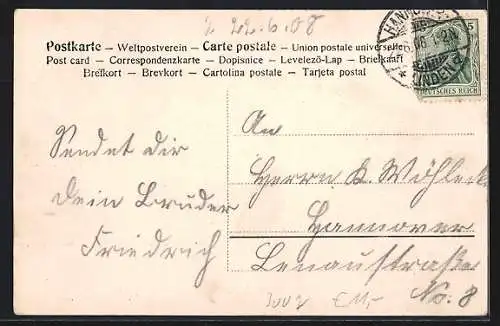 22.6.08
Postkarte – Weltpostverein – Carte postale – Union postale universelle
Post card – Correspondenzkarte – Dopisnice – Levelező-Lap – Briefkaart
Brefkort – Brevkort – Cartolina postale – Tarjeta postal
HANNOVER
LINDEN
5
DEUTSCHES REICH
Sendet dir
Dein Bruder
Friedrich
An
Herrn K.
Hannover
Lenaustraße
No. 8